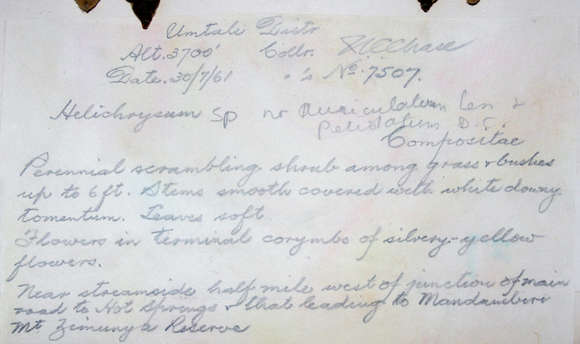 Umtali Distr
Alt. 3700' Collr. N.C. Chase
Date. 30/7/61 " 's No. 7507.
Helichrysum sp nr auriculatum Les &
petiolatum D.C.
Compositae
Perennial scrambling shrub among grass & bushes
up to 6 ft. Stems smooth covered with white downy
tomentum. Leaves soft
Flowers in terminal corymbs of silvery-yellow
flowers.
Near streamside half mile west of junction of main
road to Hot Springs & that leading to
Mt Zimunya Reserve